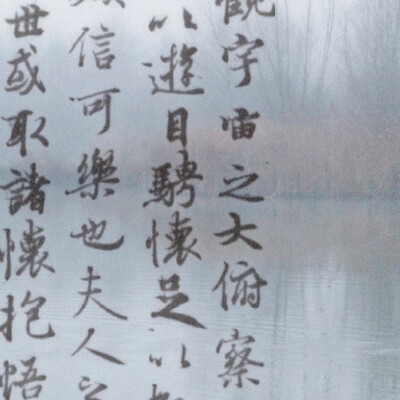 觀宇宙之大俯察
以遊目騁懷足以
信可樂也夫人之
世或取諸懷抱悟